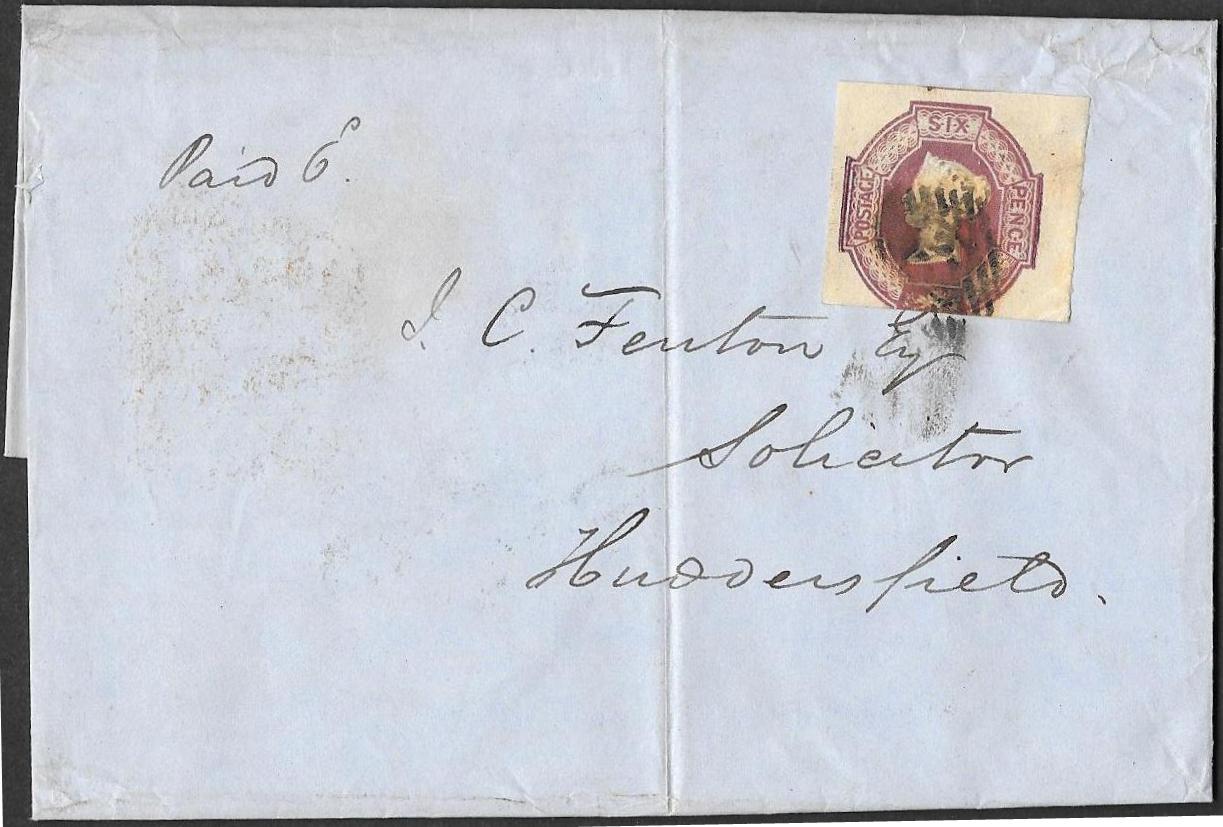 SIX
POSTAGE
PENCE
Paid 6d.
J. C. Fenton Esq
Solicitor
Huddersfield.